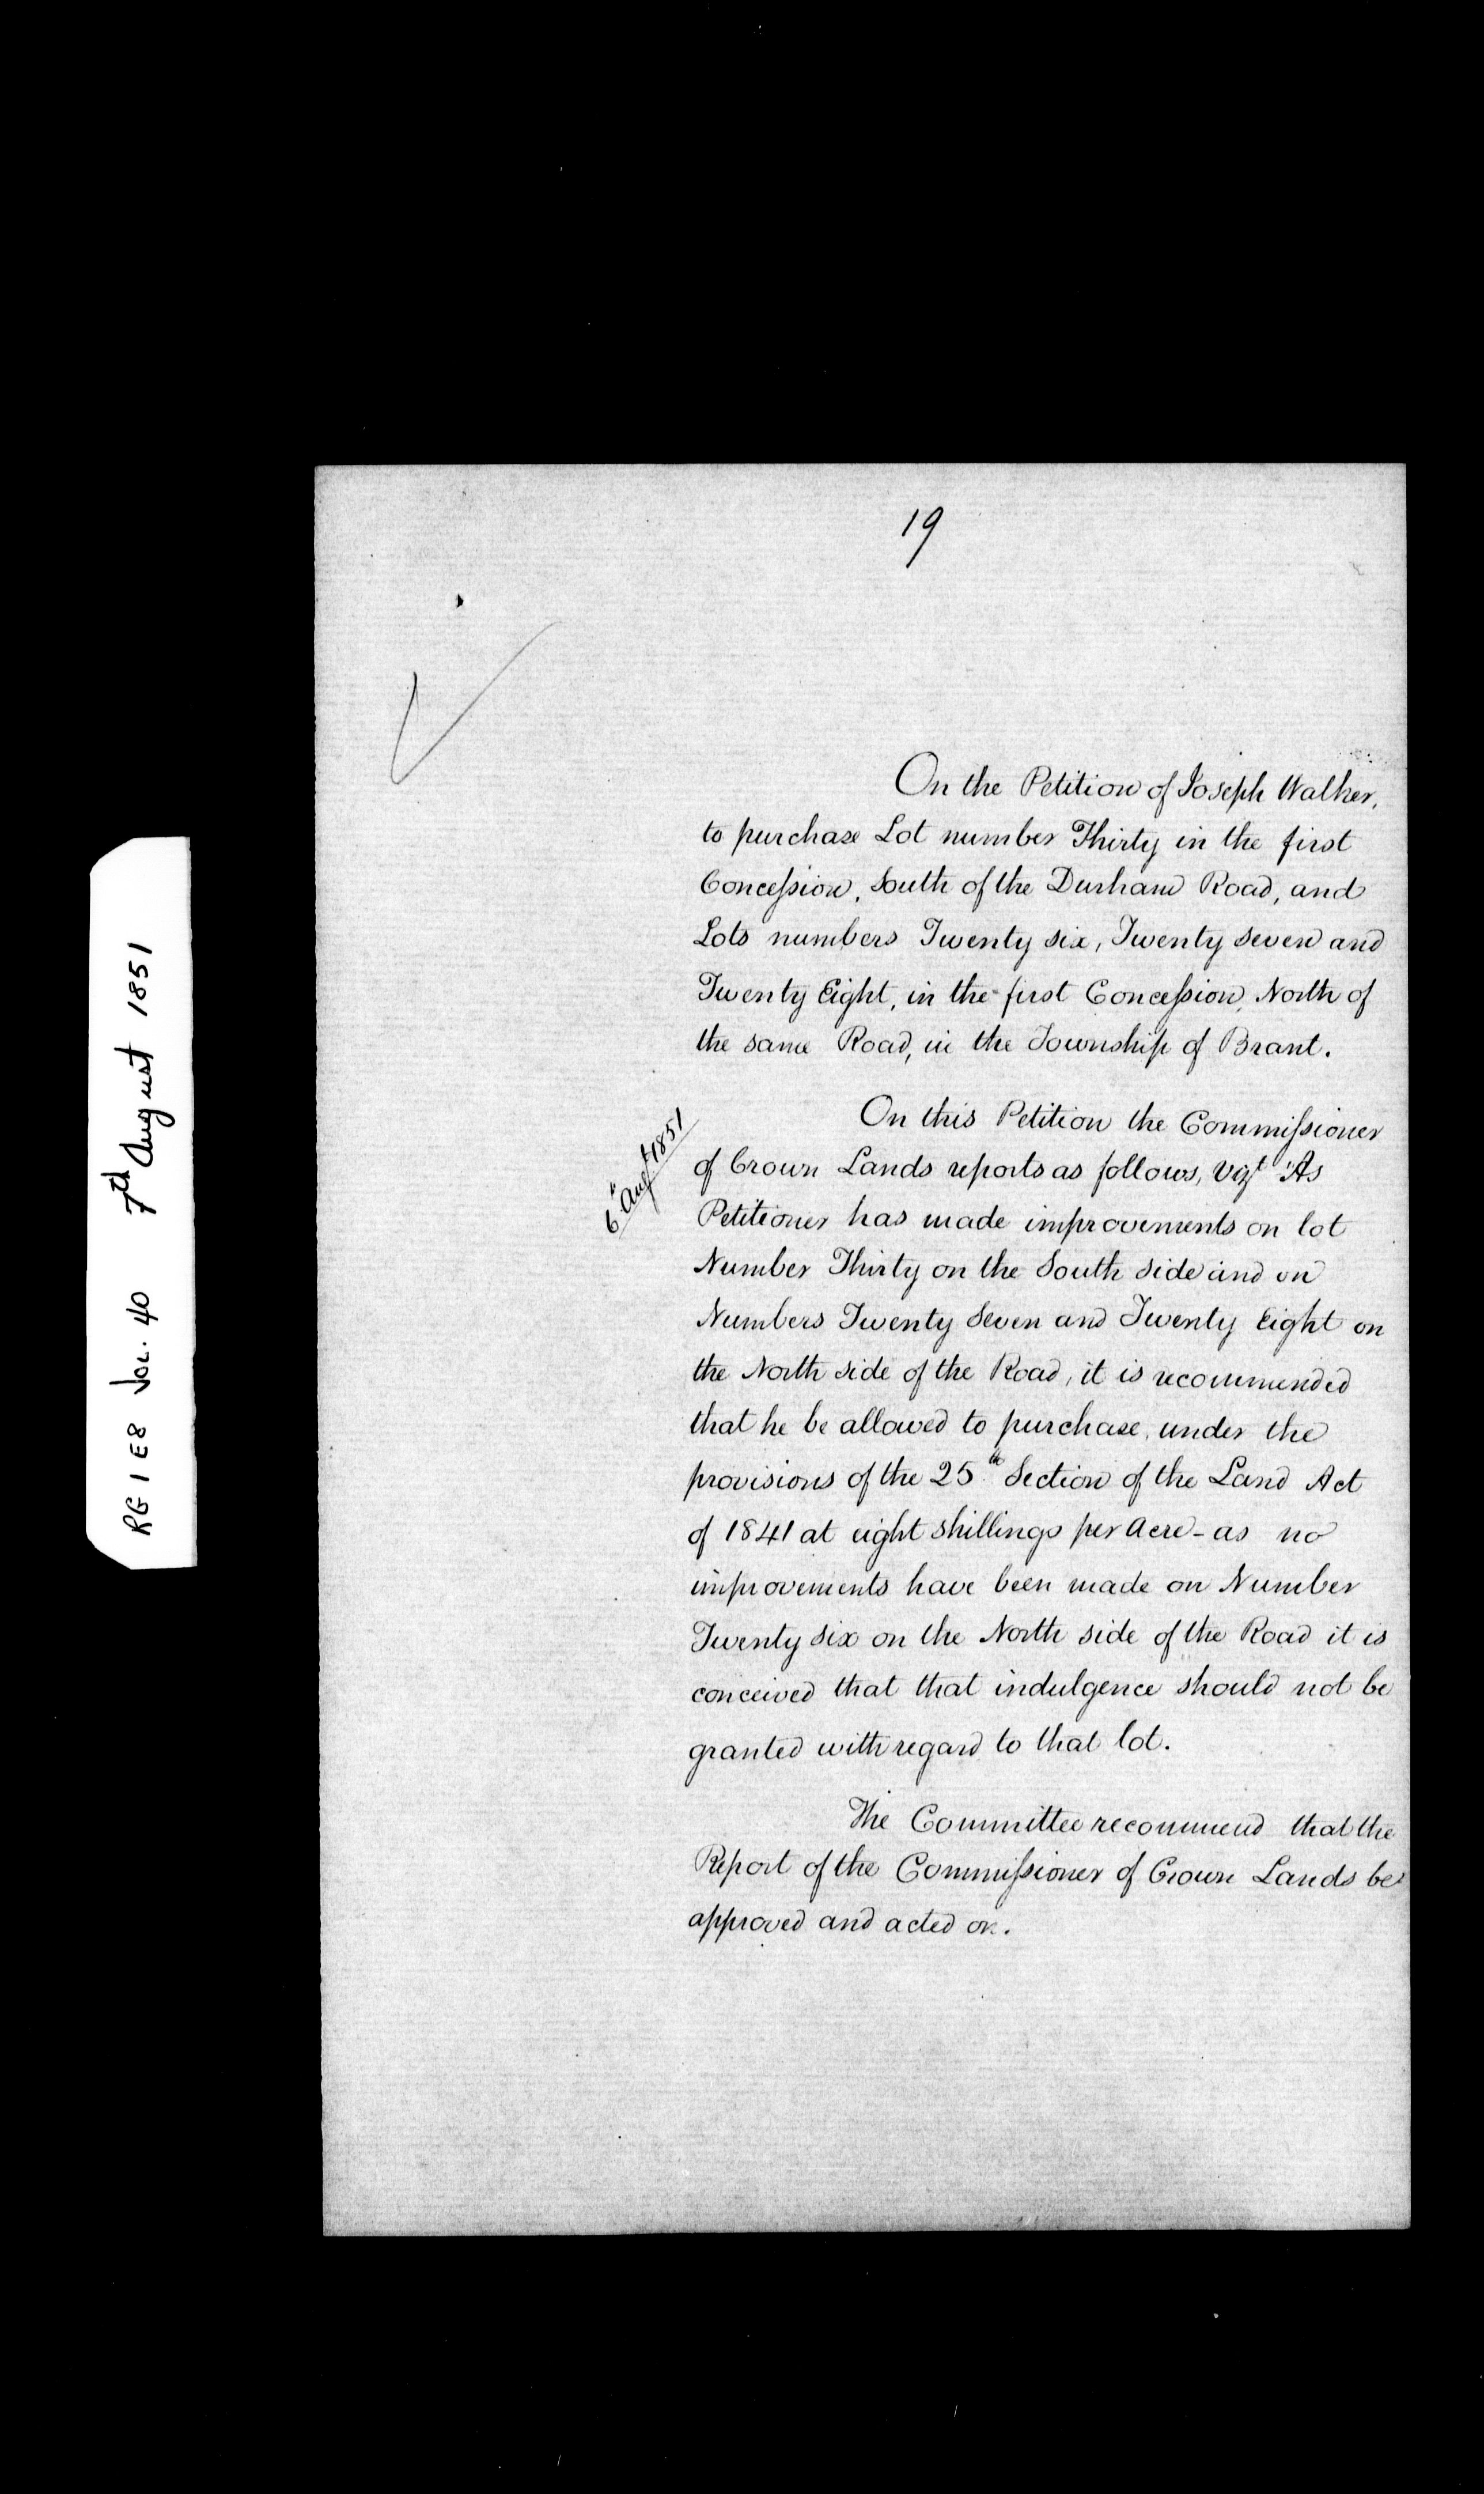 RG 1 E8 Vol. 40 7th August 1851
19
On the Petition of Joseph Walker,
to purchase Lot number Thirty in the first
Concession, South of the Durham Road, and
Lots numbers Twenty six, Twenty seven and
Twenty Eight, in the first Concession, North of
the same Road, in the Township of Brant.
6th Augt 1851
On this Petition the Commissioner
of Crown Lands reports as follows, Vizt "As
Petitioner has made improvements on lot
Number Thirty on the South side and on
Numbers Twenty Seven and Twenty Eight on
the North side of the Road, it is recommended
that he be allowed to purchase, under the
provisions of the 25th Section of the Land Act
of 1841 at eight shillings per Acre - as no
improvements have been made on Number
Twenty six on the North side of the Road it is
conceived that that indulgence should not be
granted with regard to that lot.
The Committee recommend that the
Report of the Commissioner of Crown Lands be
approved and acted on.